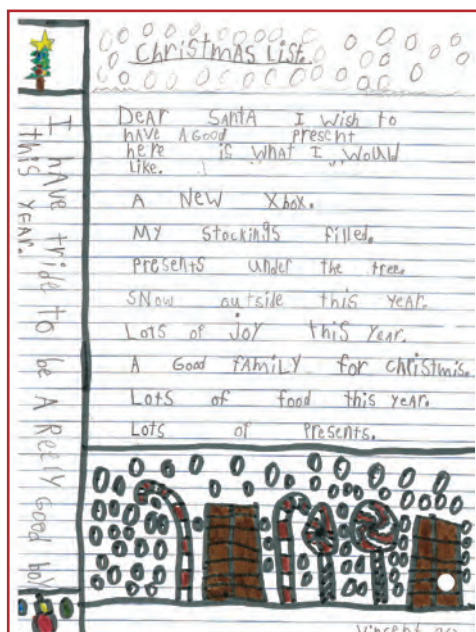 Christmas List.
Dear Santa I wish to
have A Good present
here is what I would
like.
A New Xbox.
My stockings filled.
Presents under the tree.
Snow outside this year.
Lots of joy this year.
A Good family for christmis.
Lots of food this year.
Lots of Presents.
I have tride to be A Really Good boy
this year.
Vincent